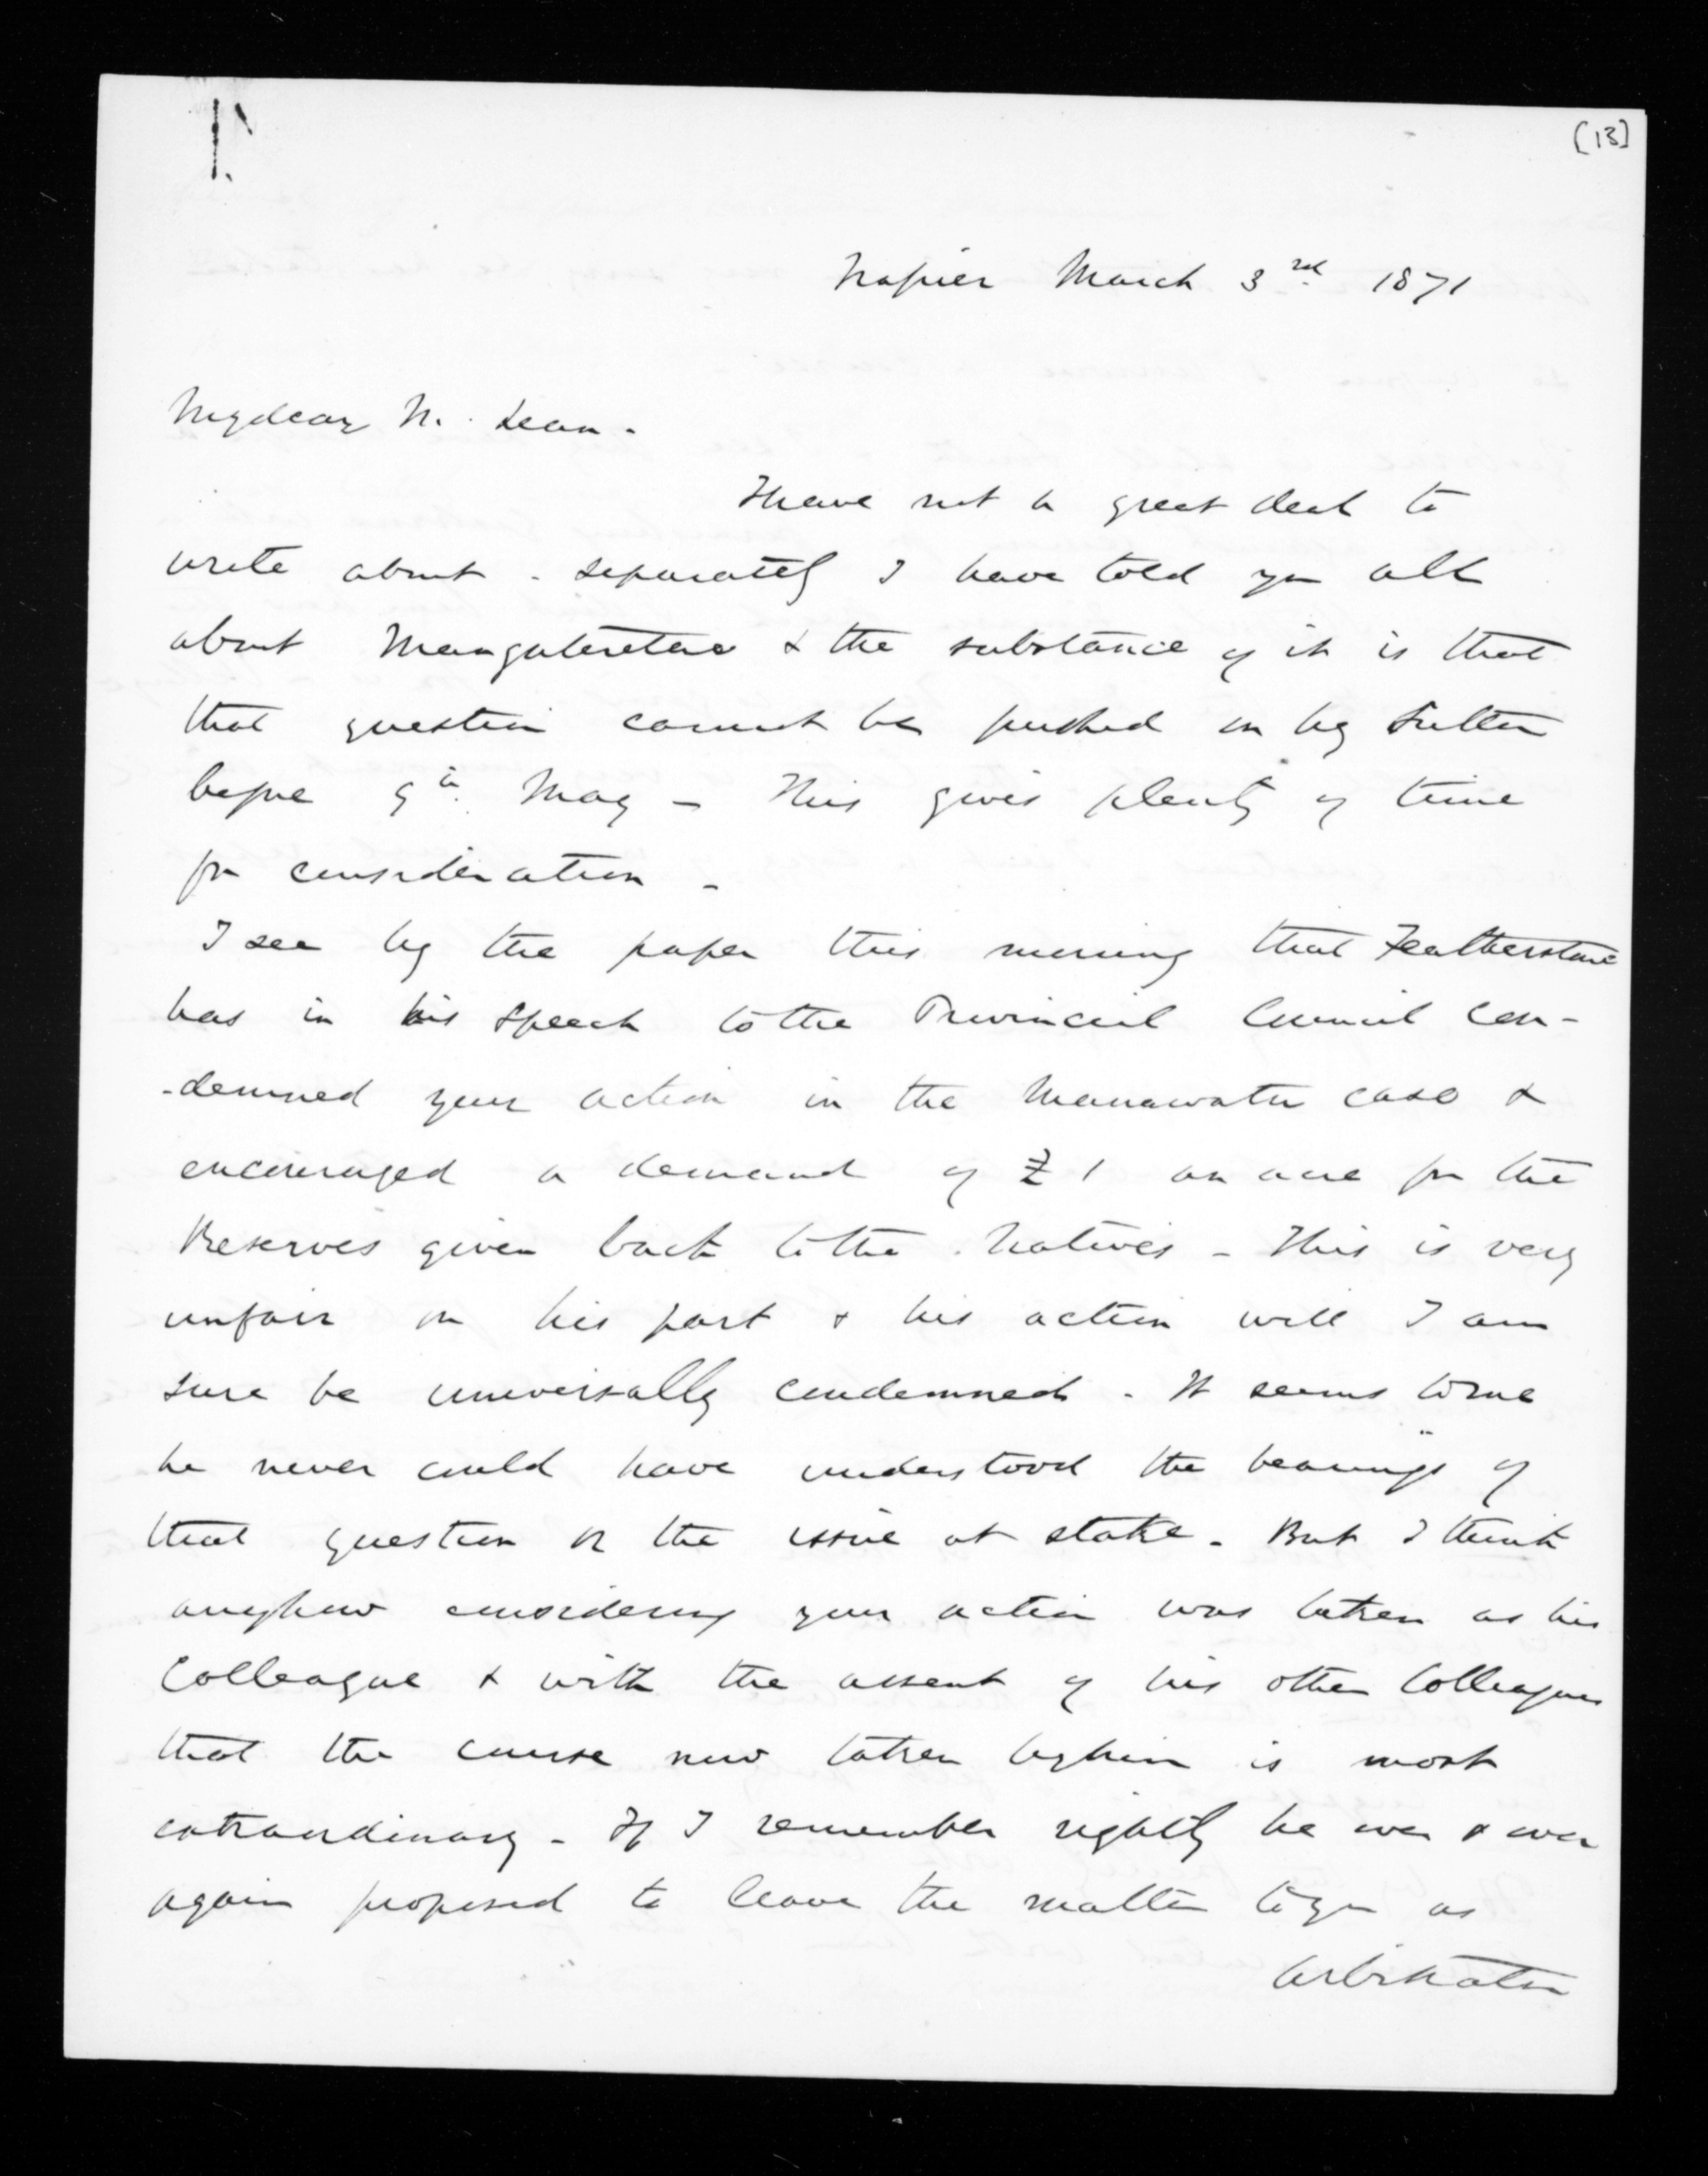 [13]
Napier March 3rd 1871
My dear McLean.
I have not a great deal to
write about. separately I have told you all
about Mangateretere & the substance of it is that
that question cannot be pushed on by Sutton
before 9th May - This gives plenty of time
for consideration -
I see by the paper this morning that Featherstone
has in his speech to the Provincial Council con-
-demned your action in the Manawatu case &
encouraged a demand of £1 an acre for the
Reserves given back to the Natives - This is very
unfair on his part & his action will I am
sure be universally condemned. It seems to me
he never could have understood the bearings of
that question or the issue at stake. But I think
anyhow considering your action was taken as his
Colleague & with the assent of his other Colleagues
that the course now taken by him is most
extraordinary - If I remember rightly he over & over
again proposed to leave the matter to you as
arbitrator